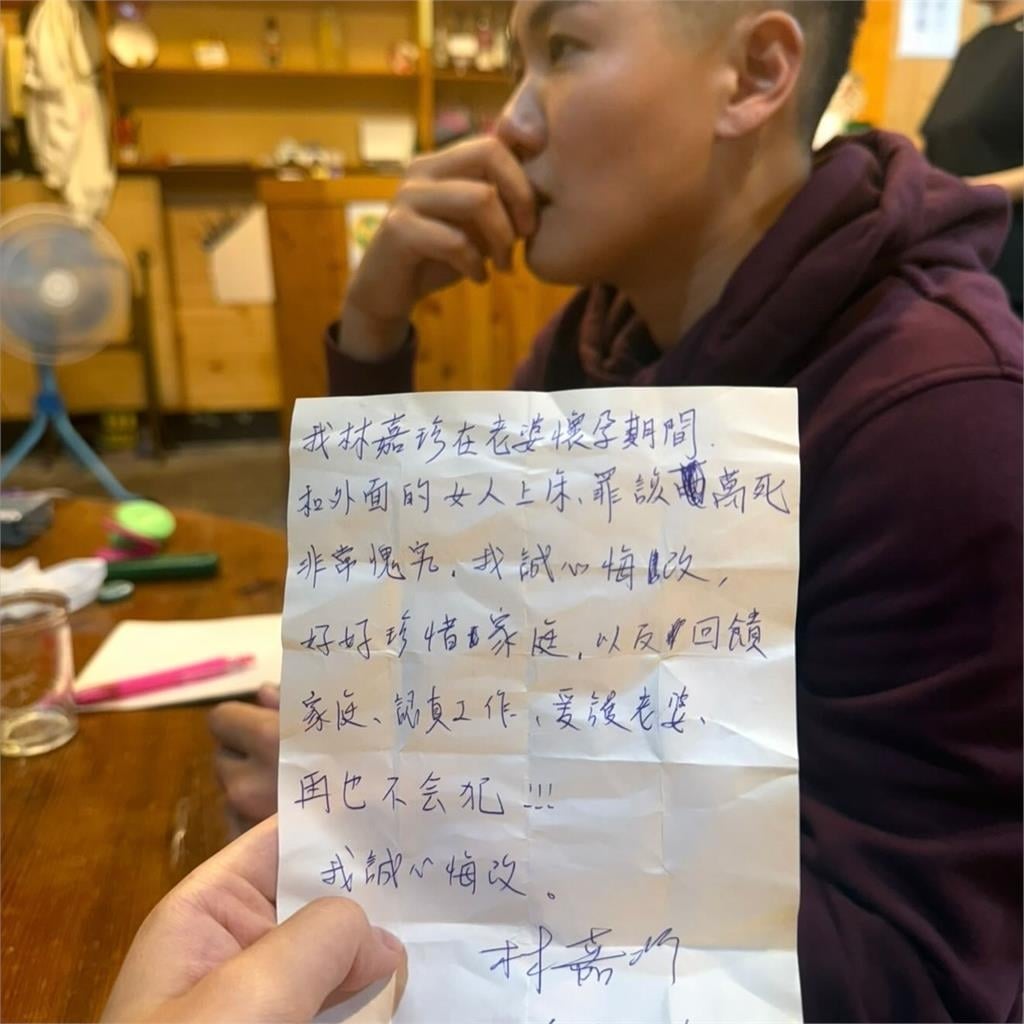 我林嘉珍在老婆懷孕期間.
和外面的女人上床、罪該萬死
非常愧疚. 我誠心悔改,
好好珍惜家庭, 以及回饋
家庭、認真工作、爱護老婆、
再也不会犯!!!
我誠心悔改。
林嘉珍